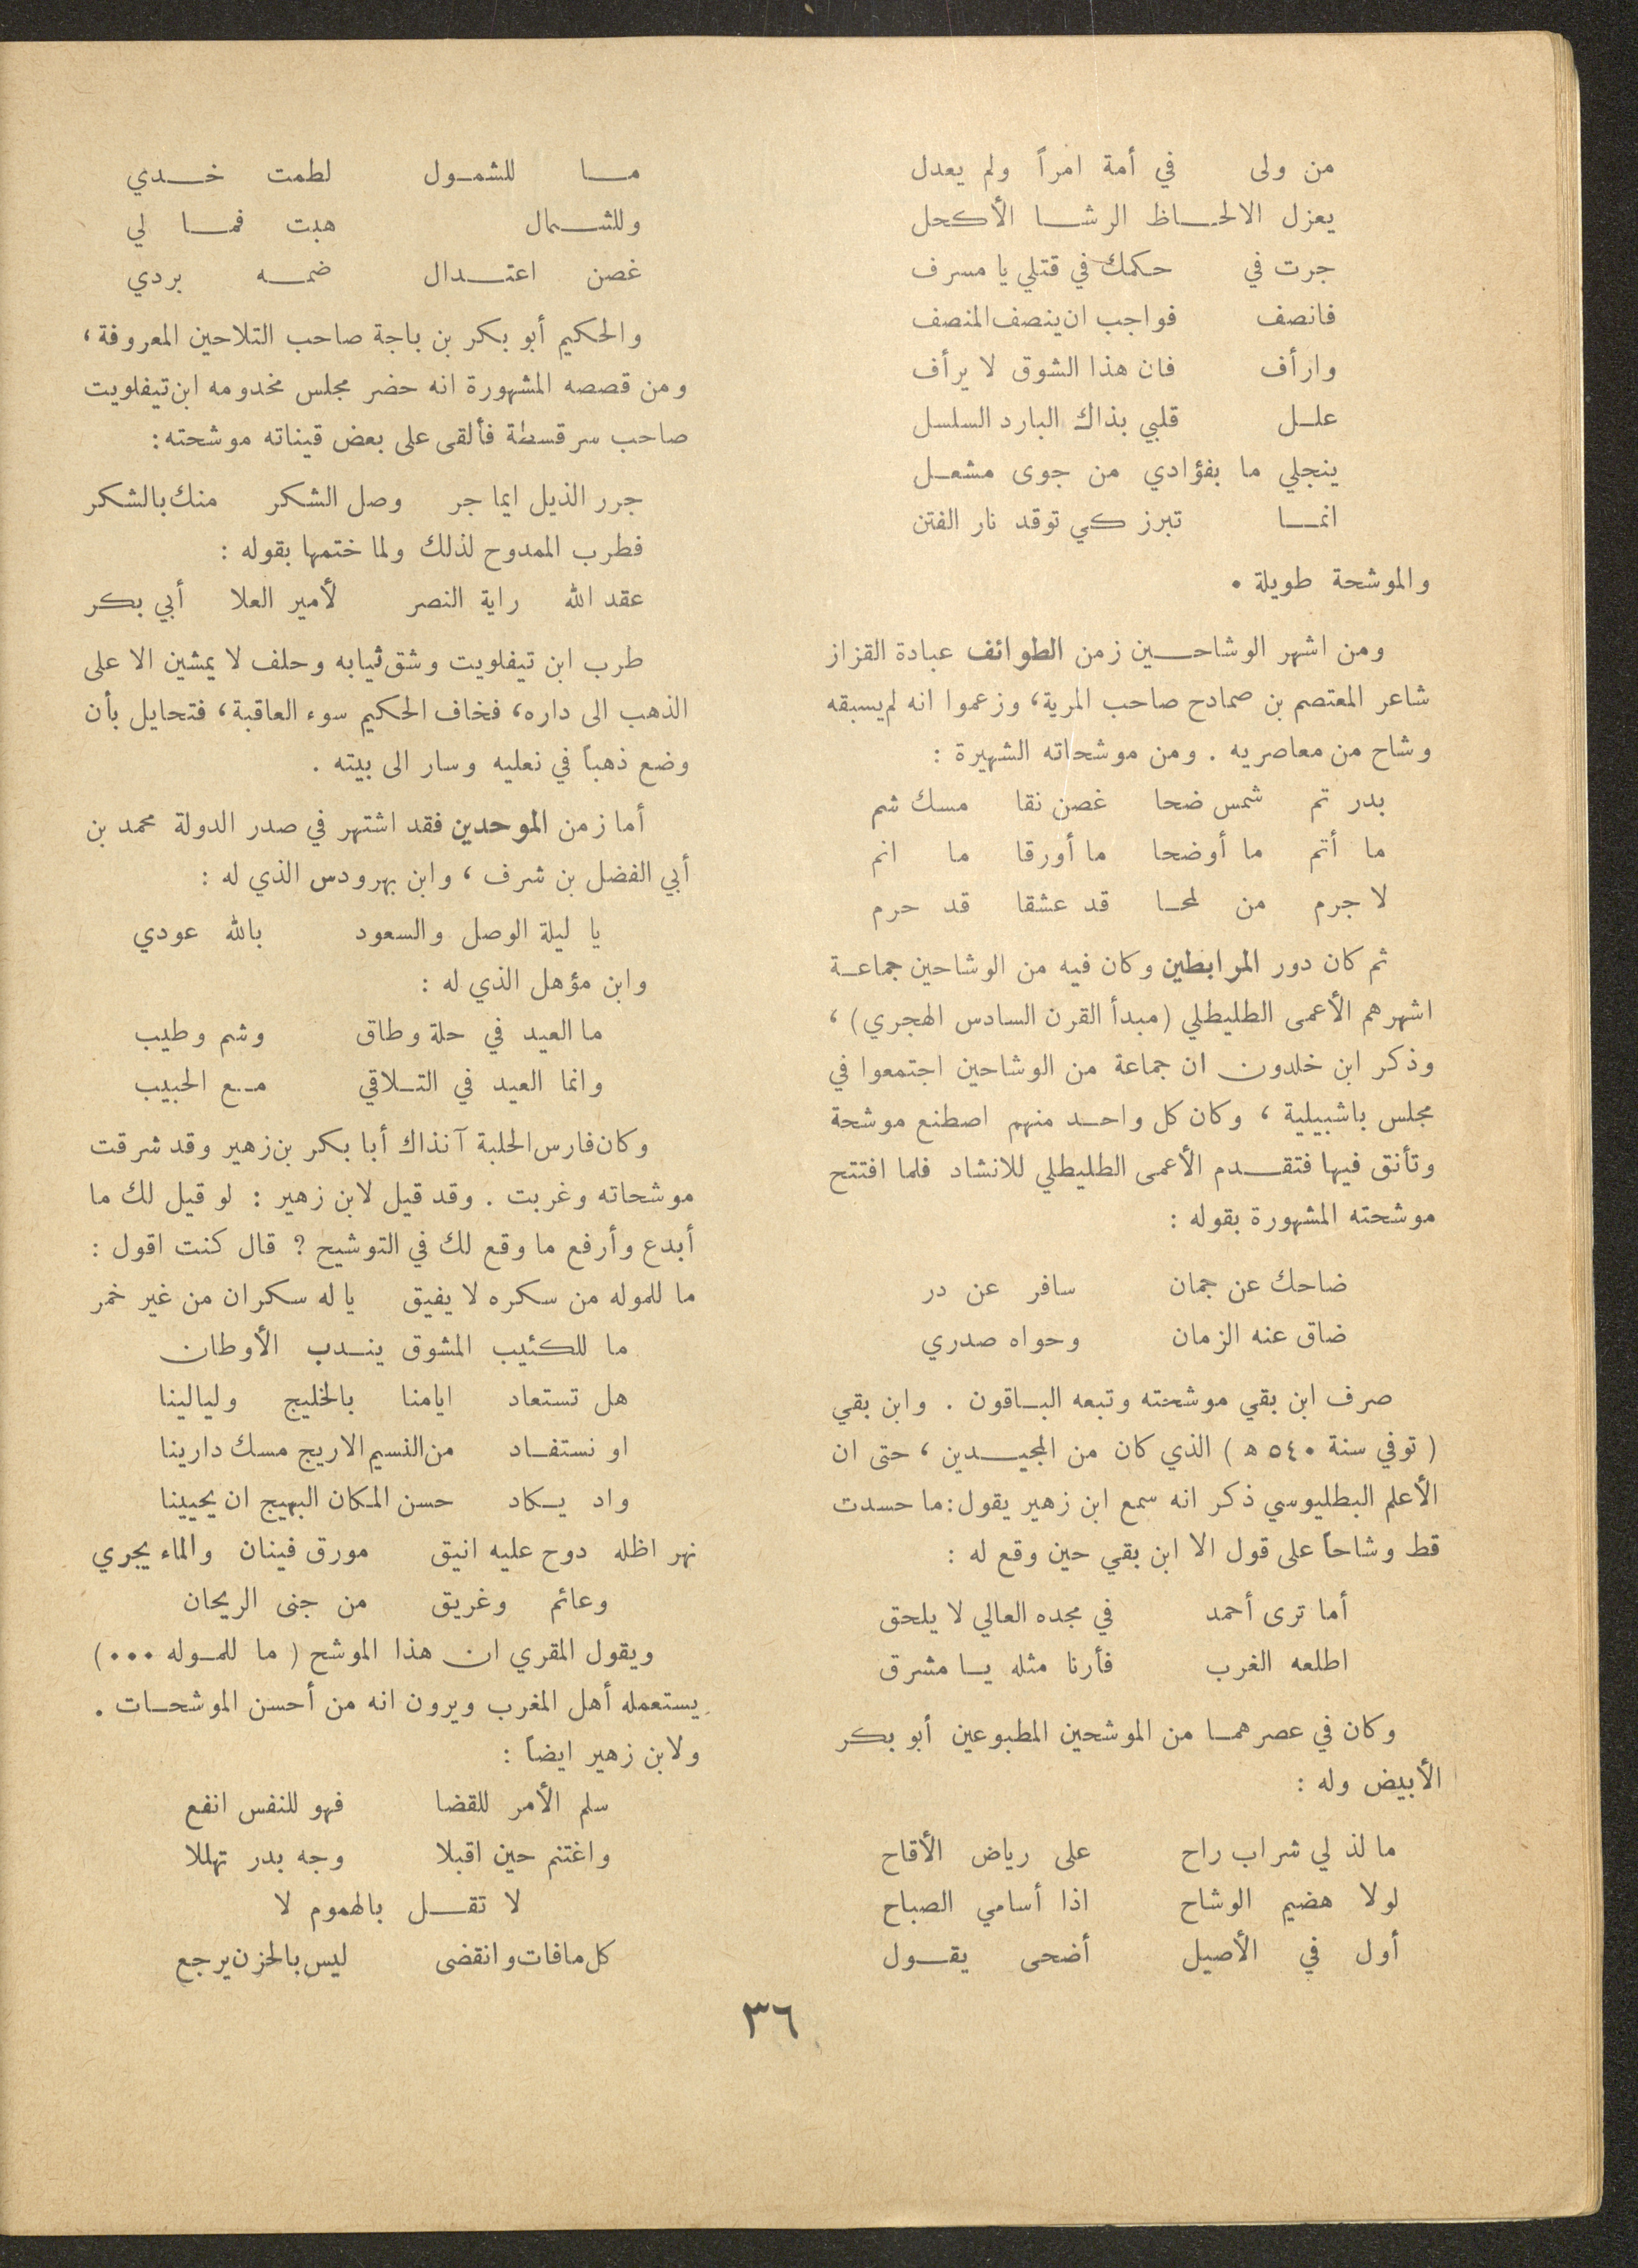 من ولى في أمة امراً ولم يعدل
يعزل الالحاظ الرشا الأكحل
جرت في حكمك في قتلي يا مسرف
فانصف فواجب ان ينصف المنصف
وارأف فان هذا الشوق لا يرأف
علل قلبي بذاك البارد السلسل
ينجلي ما بفؤادي من جوى مشعل
انما تبرز كي توقد نار الفتن
والموشحة طويلة .
ومن اشهر الوشاحين زمن الطوائف عبادة القزاز
شاعر المعتصم بن صمادح صاحب المرية، وزعموا انه لم يسبقه
وشاح من معاصريه . ومن موشحاته الشهيرة :
بدر تم شمس ضحا غصن نقا مسك شم
ما أتم ما أوضحا ما أورقا ما انم
لا جرم من لمحا قد عشقا قد حرم
ثم كان دور المرابطين وكان فيه من الوشاحين جماعة
اشهرهم الأعمى الطليطلي (مبدأ القرن السادس الهجري) ،
وذكر ابن خلدون ان جماعة من الوشاحين اجتمعوا في
مجلس باشبيلية ، وكان كل واحد منهم اصطنع موشحة
وتأنق فيها فتقدم الأعمى الطليطلي للانشاد فلما افتتح
موشحته المشهورة بقوله :
ضاحك عن جمان سافر عن در
ضاق عنه الزمان وحواه صدري
صرف ابن بقي موشحته وتبعه الباقون . وابن بقي
( توفي سنة ٥٤٠ ه ) الذي كان من المجيدين ، حتى ان
الأعلم البطليوسي ذكر انه سمع ابن زهير يقول: ما حسدت
قط وشاحاً على قول الا ابن بقي حين وقع له :
أما ترى أحمد في مجده العالي لا يلحق
اطلعه الغرب فأرنا مثله يا مشرق
وكان في عصرهما من الموشحين المطبوعين أبو بكر
الأبيض وله :
ما لذ لي شراب راح على رياض الأقاح
لولا هضيم الوشاح اذا أسامي الصباح
أول في الأصيل أضحى يقول
ما للشمول لطمت خدي
وللشمال هبت فما لي
غصن اعتدال ضمه بردي
والحكيم أبو بكر بن باجة صاحب التلاحين المعروفة ،
ومن قصصه المشهورة انه حضر مجلس مخدومه ابن تيفلويت
صاحب سرقسطة فألقى على بعض قيناته موشحته:
جرر الذيل ايما جر وصل الشكر منك بالشكر
فطرب الممدوح لذلك ولما ختمها بقوله :
عقد الله راية النصر لأمير العلا أبي بكر
طرب ابن تيفلويت وشق ثيابه وحلف لا يمشين الا على
الذهب الى داره، فخاف الحكيم سوء العاقبة، فتحايل بأن
وضع ذهباً في نعليه وسار الى بيته .
أما زمن الموحدين فقد اشتهر في صدر الدولة محمد بن
أبي الفضل بن شرف ، وابن بهرودس الذي له :
يا ليلة الوصل والسعود بالله عودي
وابن مؤهل الذي له :
ما العيد في حلة وطاق وشم وطيب
وانما العيد في التلاقي مع الحبيب
وكان فارس الحلبة آنذاك أبا بكر بن زهير وقد شرقت
موشحاته وغربت . وقد قيل لابن زهير : لو قيل لك ما
أبدع وأرفع ما وقع لك في التوشيح ? قال كنت اقول :
ما للموله من سكره لا يفيق يا له سكران من غير خمر
ما للكئيب المشوق يندب الأوطان
هل تستعاد ايامنا بالخليج وليالينا
او نستفاد من النسيم الاريج مسك دارينا
واد يكاد حسن المكان البهيج ان يحيينا
نهر اظله دوح عليه انيق مورق فينان والماء يجري
وعائم وغريق من جنى الريحان
ويقول المقري ان هذا الموشح ( ما للموله ٠٠٠)
يستعمله أهل المغرب ويرون انه من أحسن الموشحات .
ولابن زهير ايضاً :
سلم الأمر للقضا فهو للنفس انفع
واغتنم حين اقبلا وجه بدر تهللا
لا تقل بالهموم لا
كل ما فات وانقضى ليس بالحزن يرجع
٣٦